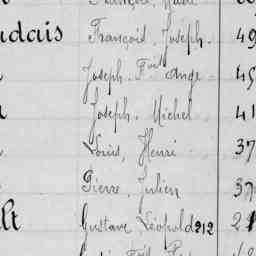 udais François, Joseph. 49
Joseph. Fois Ange 45
Joseph. Michel 41
Louis, Henri 37
Pierre. Julien 37
lt Gustave Léopold 212 21